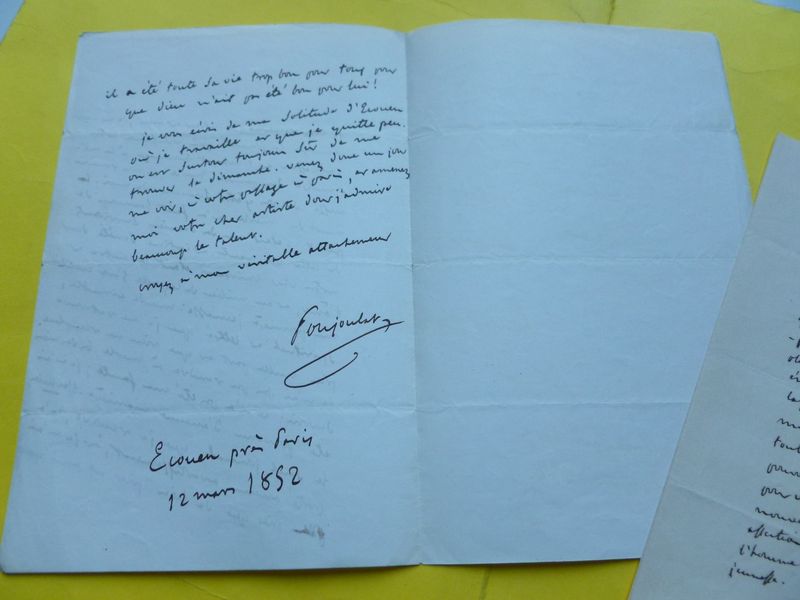 il a été toute sa vie trop bon pour tous pour
que dieu n'ait pas été bon pour lui !
je vous écris de ma solitude d'Ecouen
où je travaille et que je quitte peu.
on est surtout toujours sûr de me
trouver le dimanche. venez donc un jour
me voir, à votre passage à paris, et amenez
moi votre cher artiste dont j'admire
beaucoup le talent.
croyez à mon véritable attachement
Poujoulat
Ecouen près Paris
12 mars 1852
affection
l'homme
jeunesse.